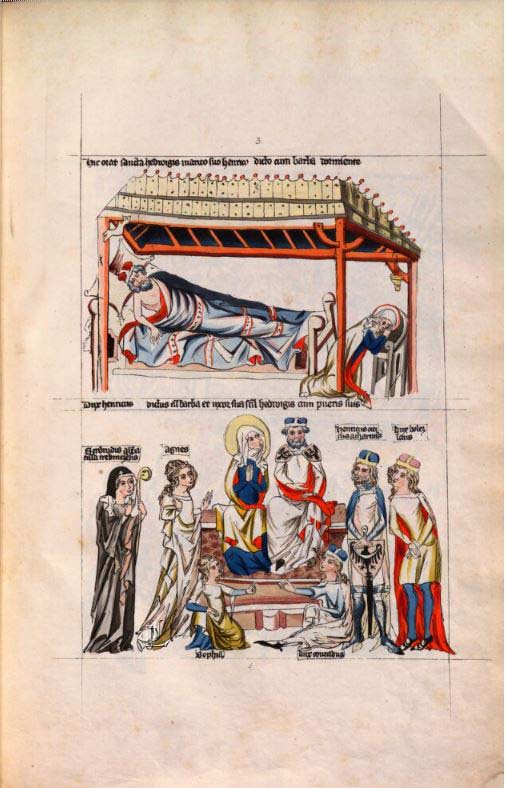 3.
Hic orat sancta hedwigis marito suo henrico dicto cum barba dormiente
Dux henricus dictus cū barba et uxor sua scā hedwigis cum pueris suis
Gerdrudis abba
tissa trebnicēsis
agnes
henricus
Dux boles
laus
Sophia
dux conradus
4.